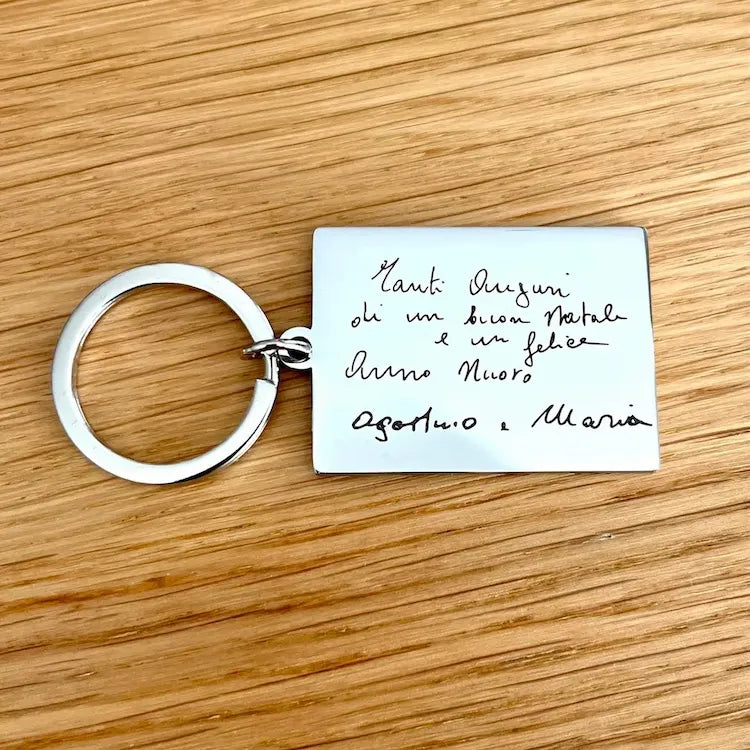 Tanti Auguri
di un buon Natale
e un felice
Anno Nuovo
Agostino e Maria